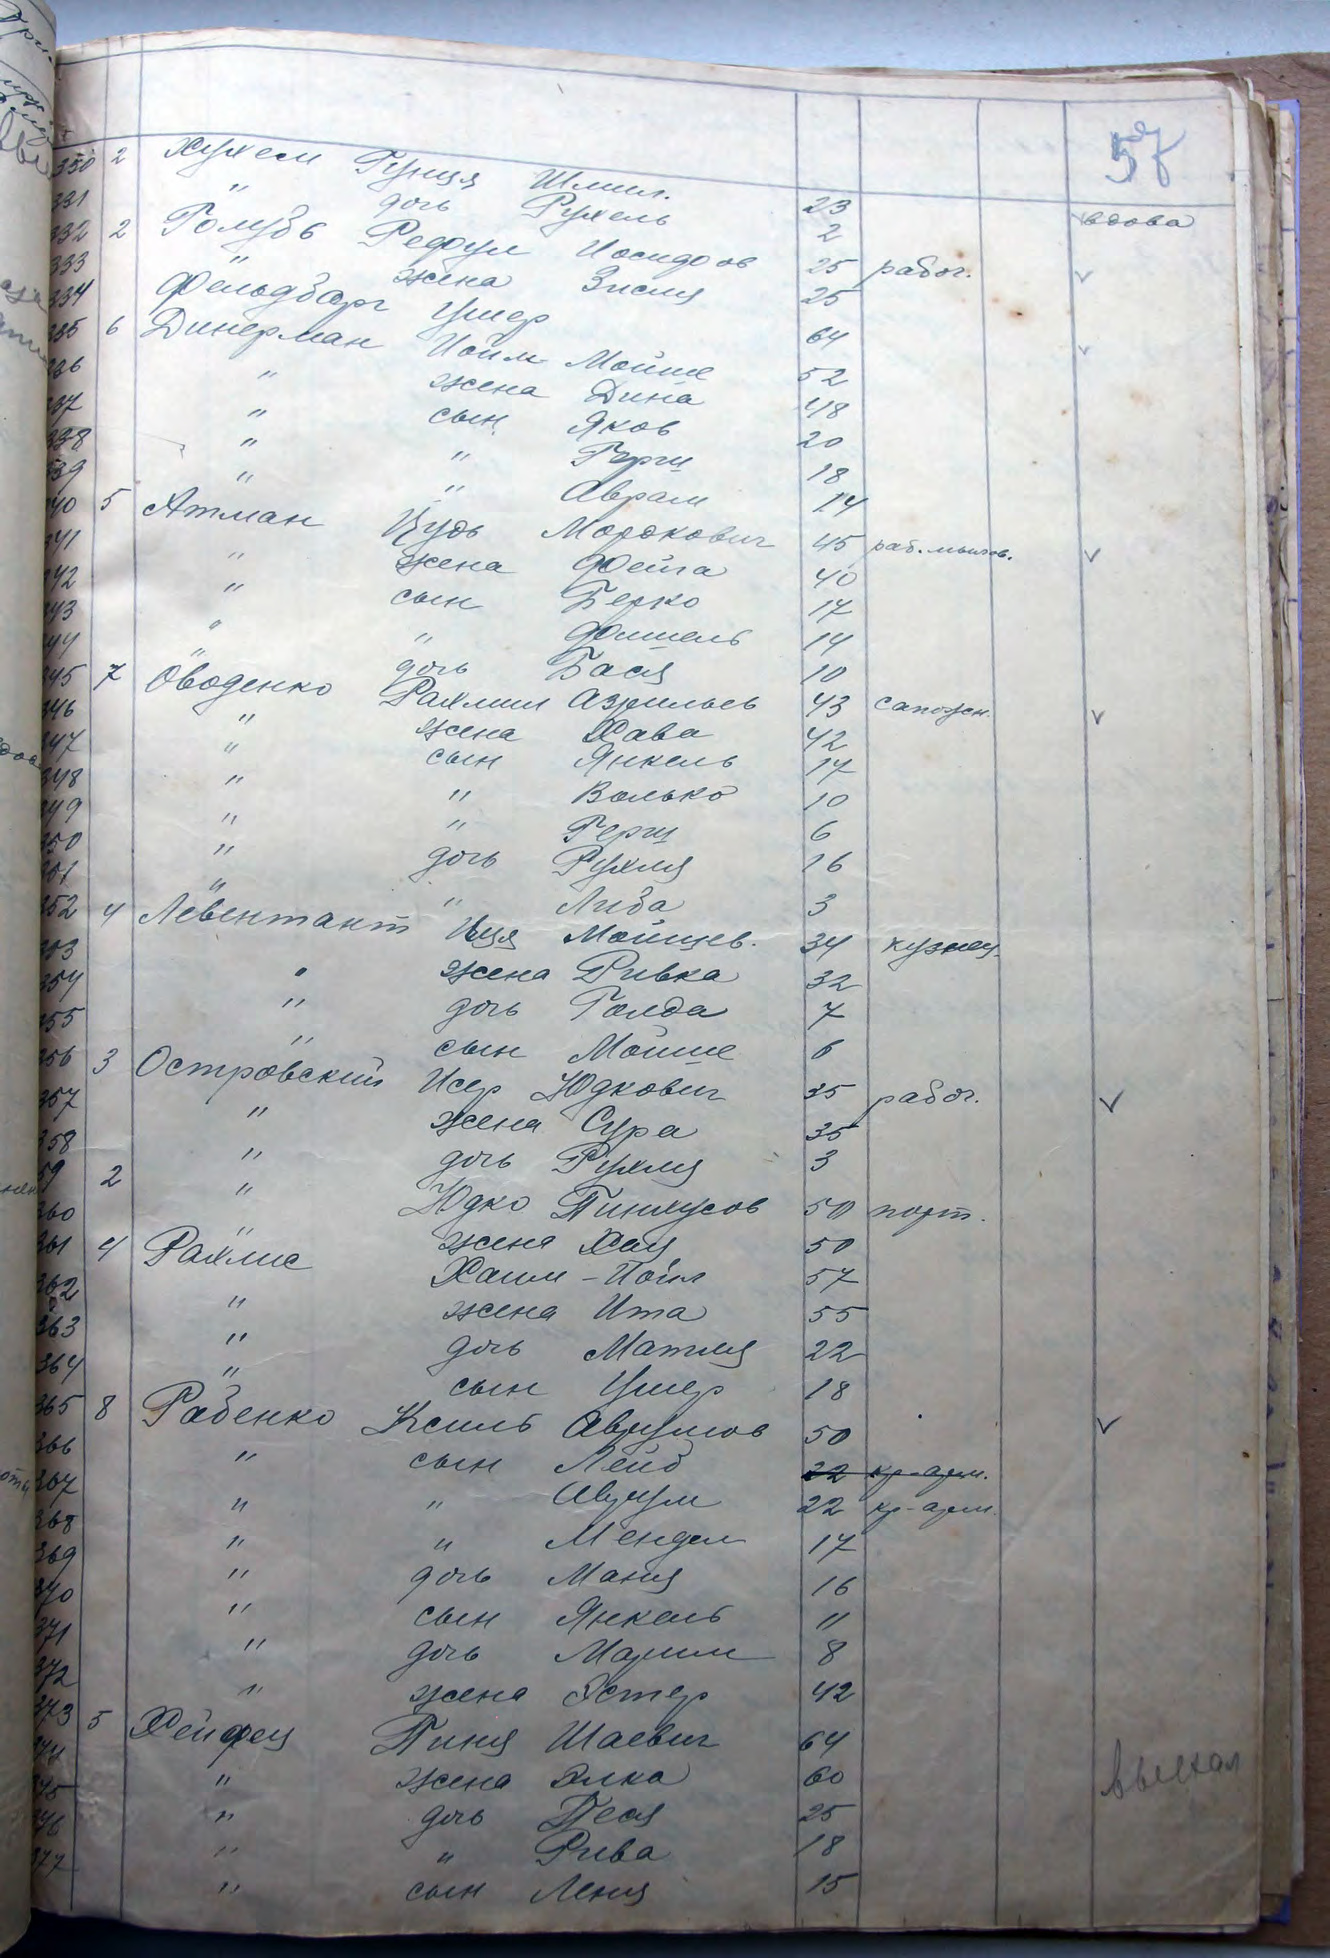 57
330 2 Хухем Гунця Шмил. 23 вдова
331 " дочь Рухель 2
332 2 Голубь Рефоул Иосифов 25 рабоч.
333 " жена Зисля 25
334 Фельдборг Ушер 64
335 6 Динерман Иойл-Мойше 52
336 " жена Дина 48
337 " сын Яков 20
338 " " Герш 18
339 " " Аврам 14
340 5 Атман Иудь Мордкович 45 раб. мылов.
341 " жена Фейга 40
342 " сын Берко 17
343 " " Фишель 14
344 " дочь Бася 10
345 7 Оводенко Рахмил Азрильев 43 сапожн.
346 " жена Хава 42
347 " сын Янкель 17
348 " " Волько 10
349 " " Герш 6
350 " дочь Рухля 16
351 " " Либа 3
352 4 Левентант Иця Мойшев. 34 кузнец.
353 " жена Ривка 32
354 " дочь Голда 7
355 " сын Мойше 6
356 3 Островский Исер Юдкович 35 рабоч.
357 " жена Сура 35
358 " дочь Рухля 3
359 2 " Юдко Пинхусов 50 порт.
360 " жена Хая 50
361 4 Рахлис Хаим-Йойл 57
362 " жена Ита 55
363 " дочь Матля 22
364 " сын Ушер 18
365 8 Рабенко Ксиль Аврумов 50
366 " сын Лейб 22 кр-арм.
367 " " Аврум 22 кр-арм.
368 " " Мендел 17
369 " дочь Маня 16
370 " сын Янкель 11
371 " дочь Марим 8
372 " жена Эстер 42
373 5 Хейфец Пиня Шаевич 64 выехал
374 " жена Элка 60
375 " дочь Песя 25
376 " " Рива 18
377 " сын Леня 15